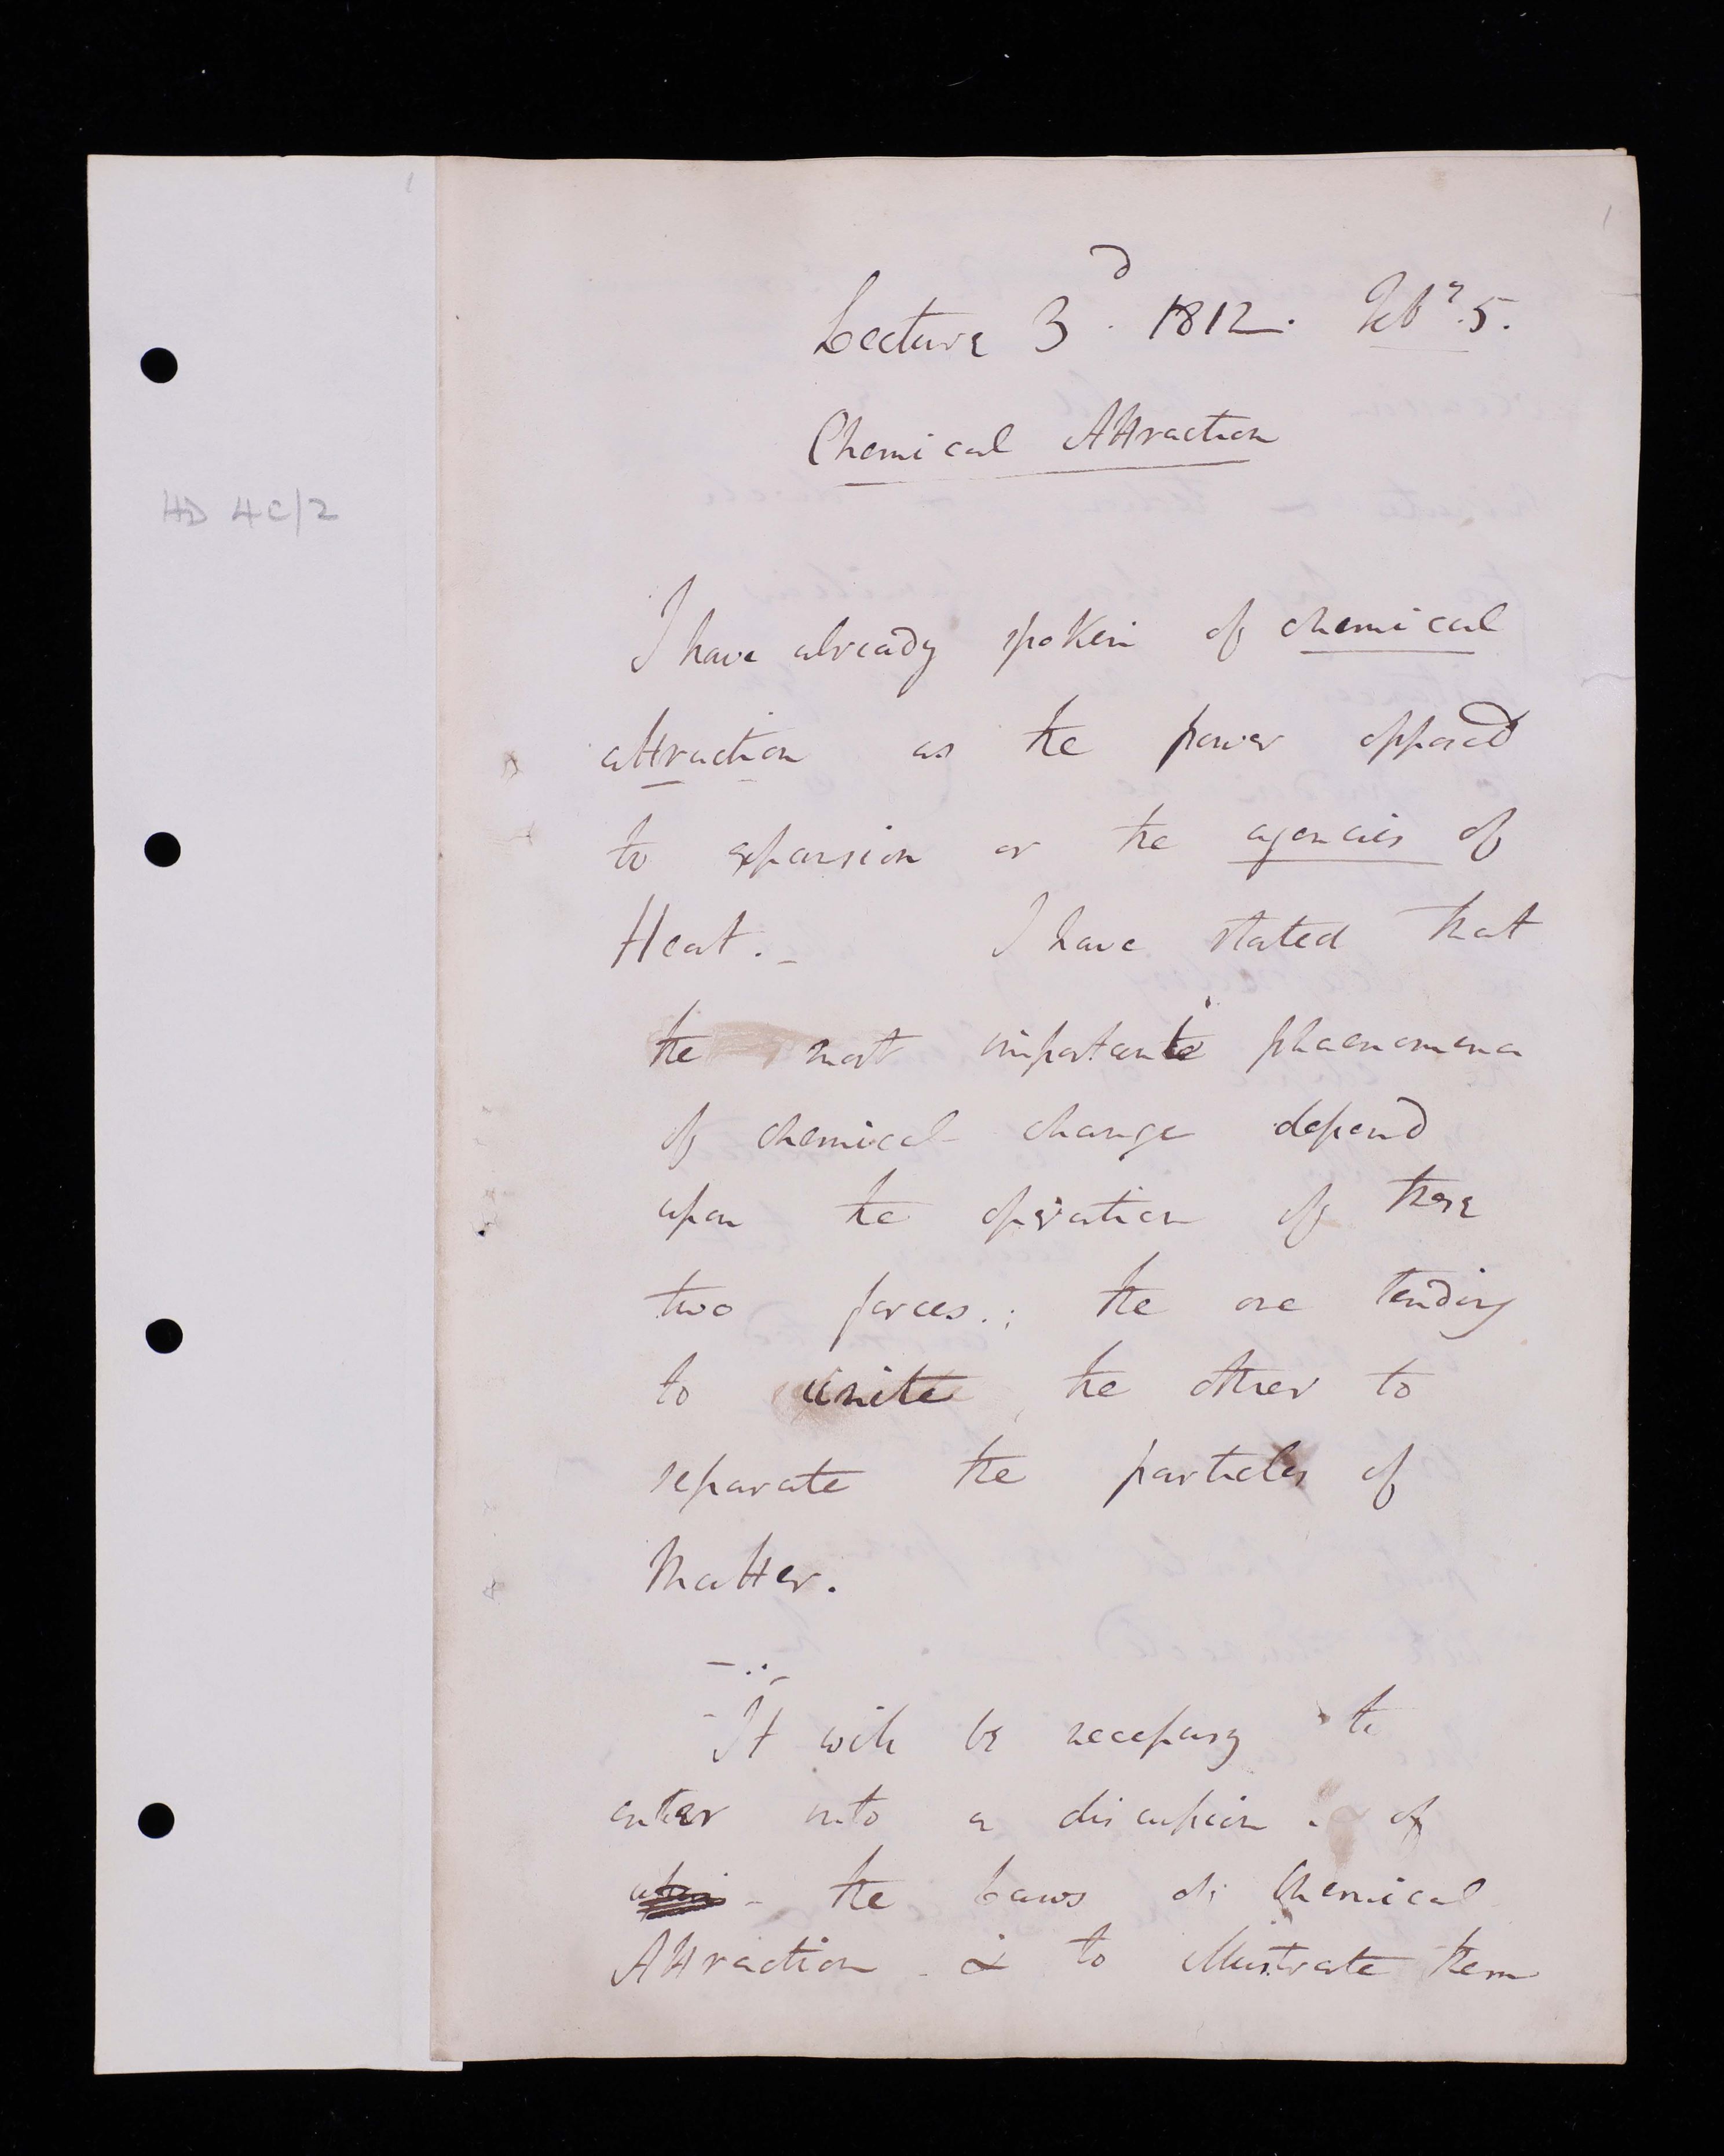 1
1
HD 4C/2
Lecture 3d. 1812. Feby. 5.
Chemical Attraction
I have already spoken of chemical
attraction as the power opposed
to expansion or the agencies of
Heat._ I have stated that
the most important phaenomena
of chemical change depend
upon the operation of these
two forces.; the one tending
to unite, the other to
separate the particles of
Matter.
It will be necessary to
enter into a discussion - of
- the Laws of Chemical
Attraction - & to illustrate them